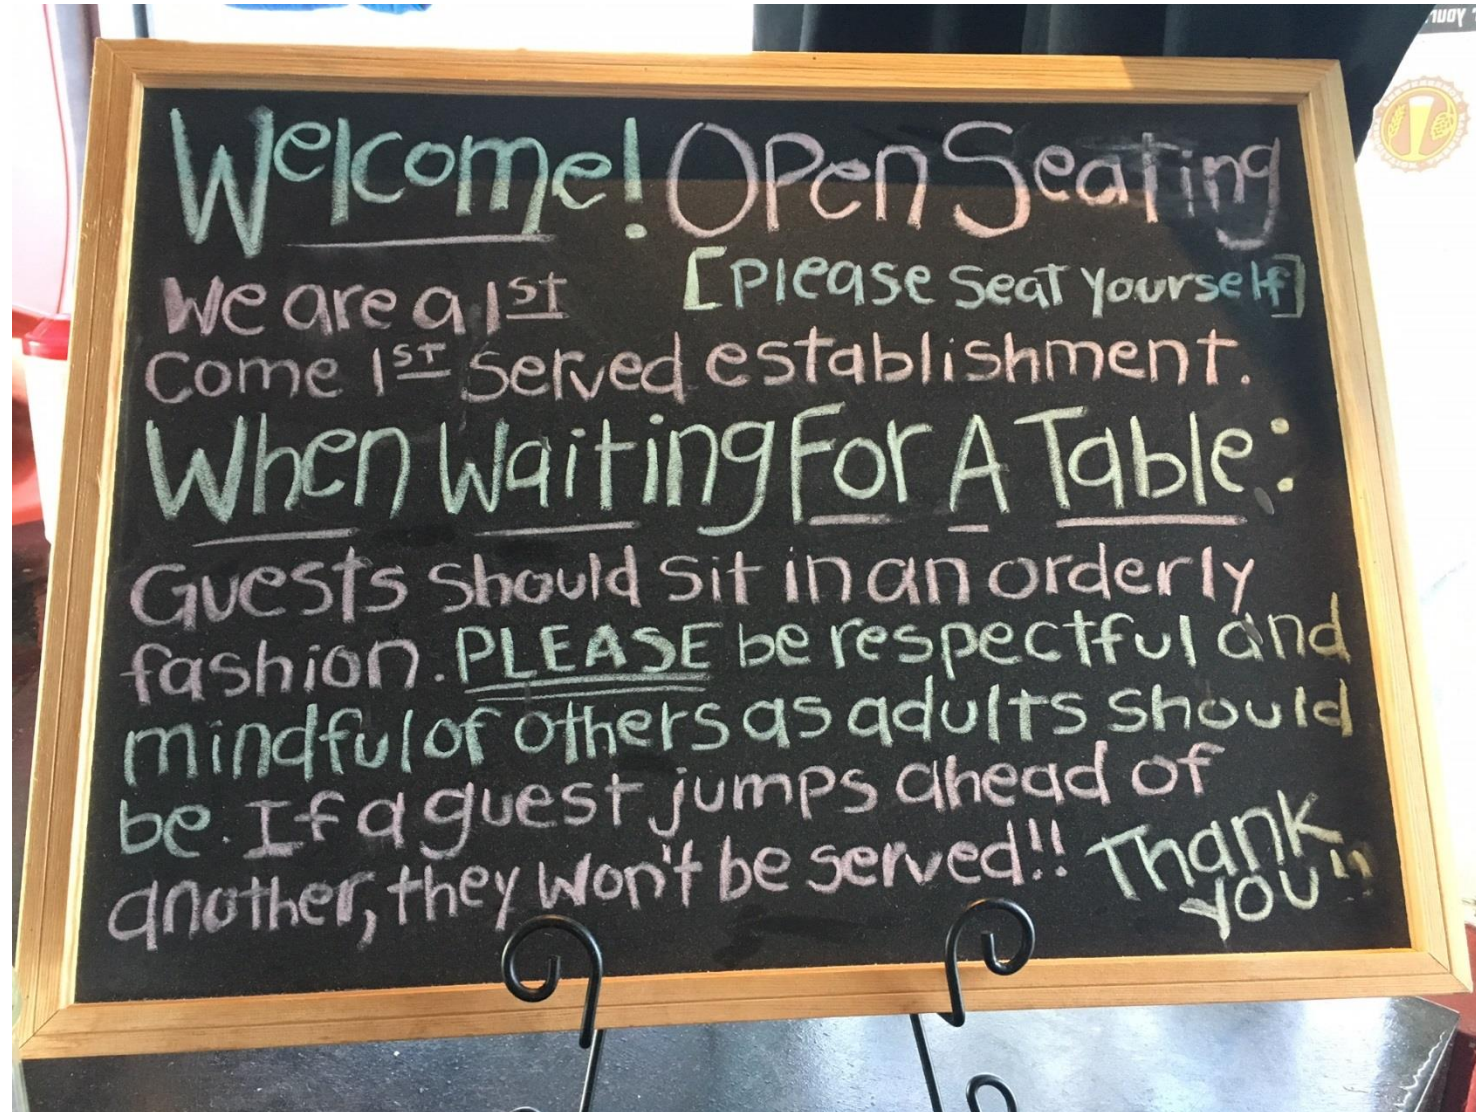 Welcome! Open Seating
[Please Seat Yourself]
We are a 1st
Come 1st Served establishment.
When Waiting For A Table:
Guests should sit in an orderly
fashion. PLEASE be respectful and
mindful of others as adults should
be. If a guest jumps ahead of
another, they won't be served!! Thank
you!!
your